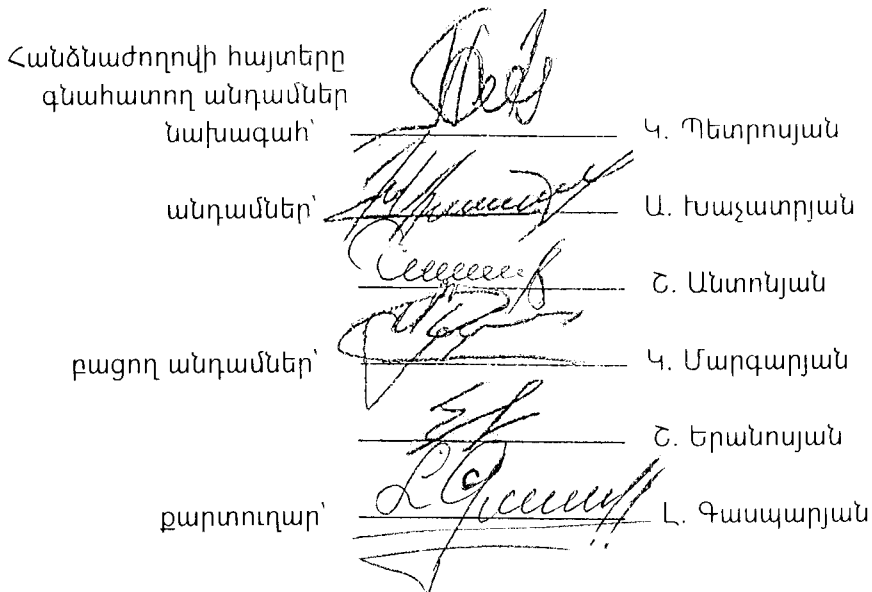 Հանձնաժողովի հայտերը
գնահատող անդամներ
նախագահ՝ Կ. Պետրոսյան
անդամներ՝ Ա. Խաչատրյան
Շ. Անտոնյան
բացող անդամներ՝ Կ. Մարգարյան
Շ. Երանոսյան
քարտուղար՝ Լ. Գասպարյան